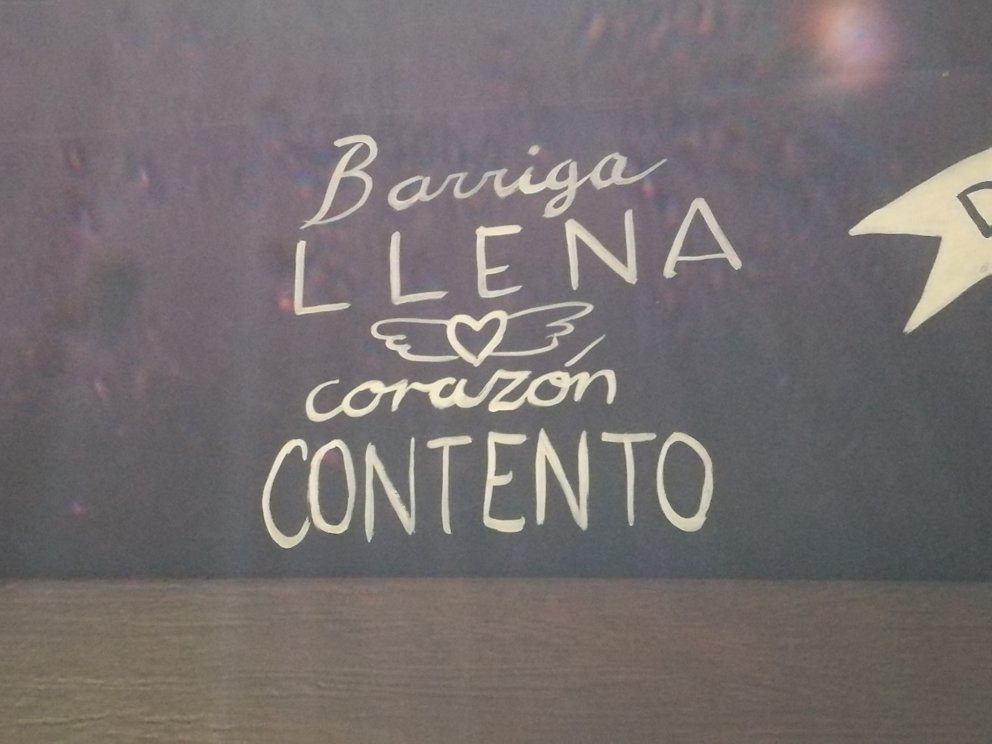 Barriga
LLENA
corazón
CONTENTO